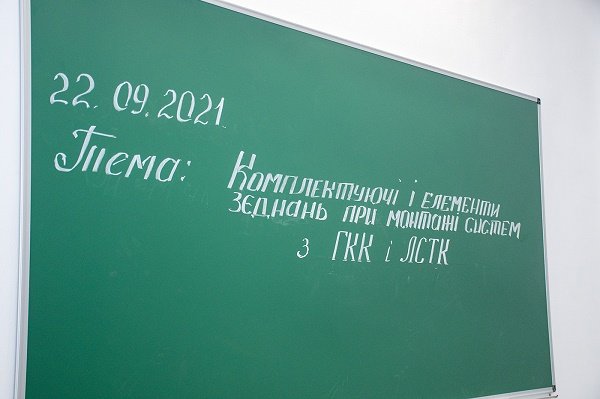 22.09.2021.
Тема: Комплектуючі і елементи
зєднань при монтажі систем
з ГКК і ЛСТК